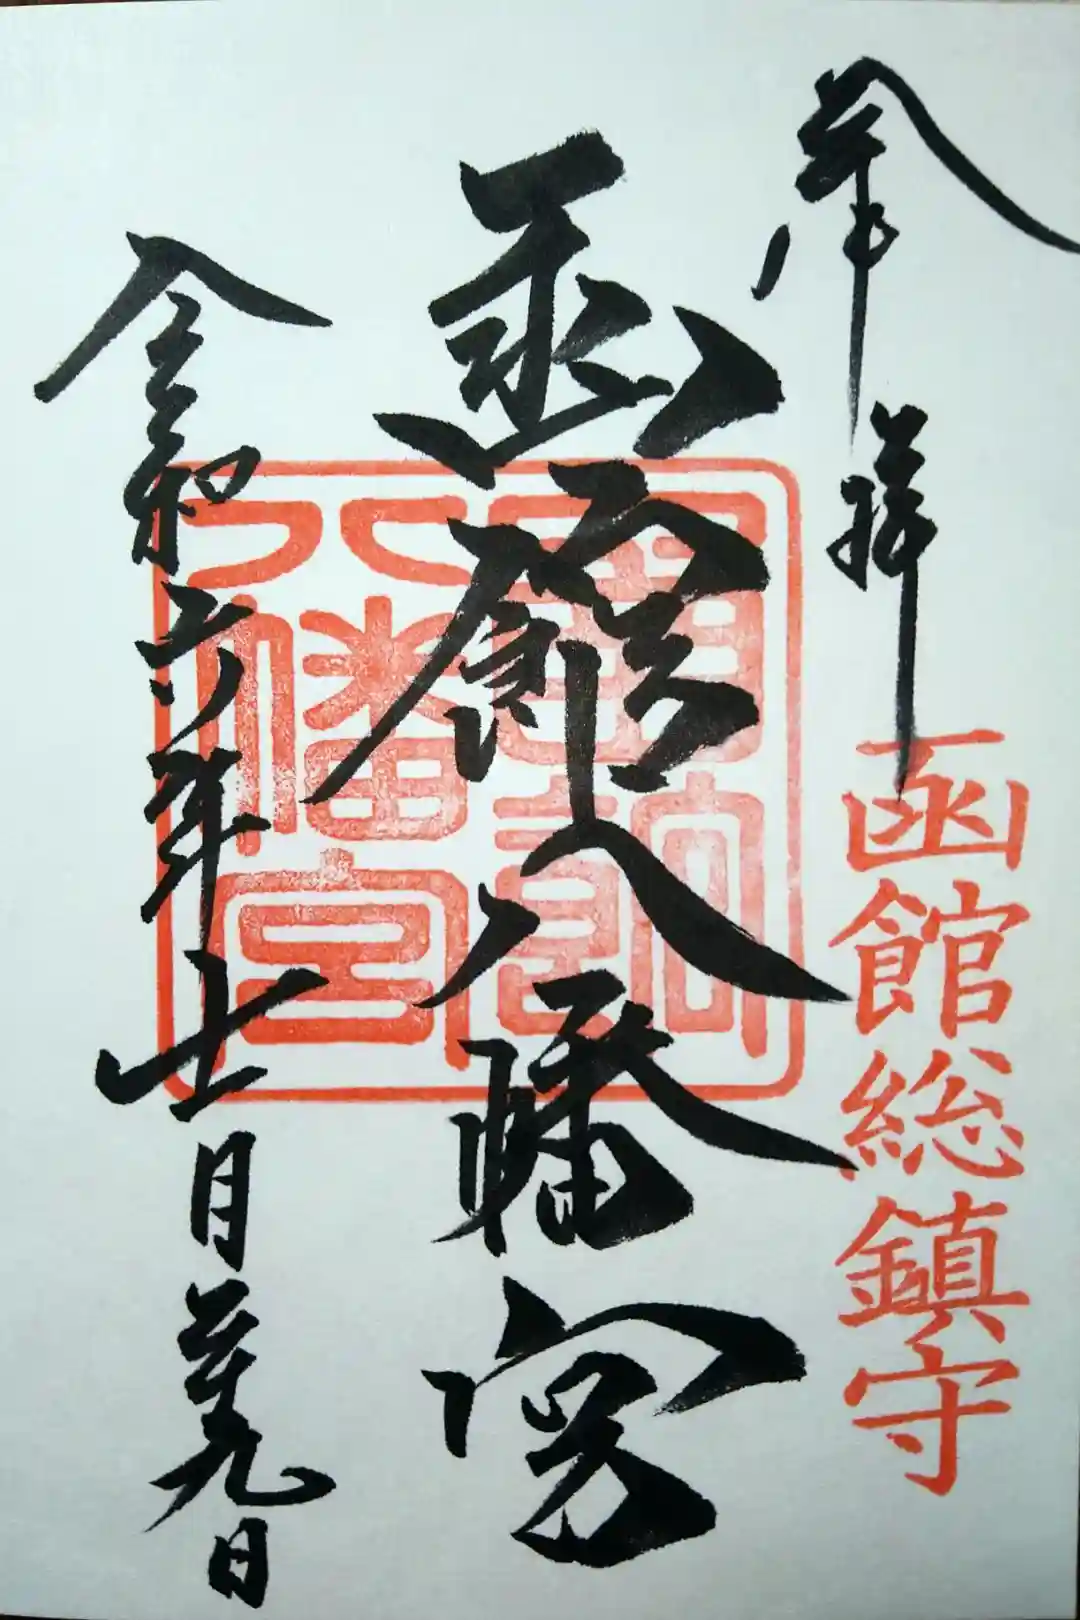 奉拝
函館総鎮守
函館八幡宮
八幡宮
令和六年十一月廿九日